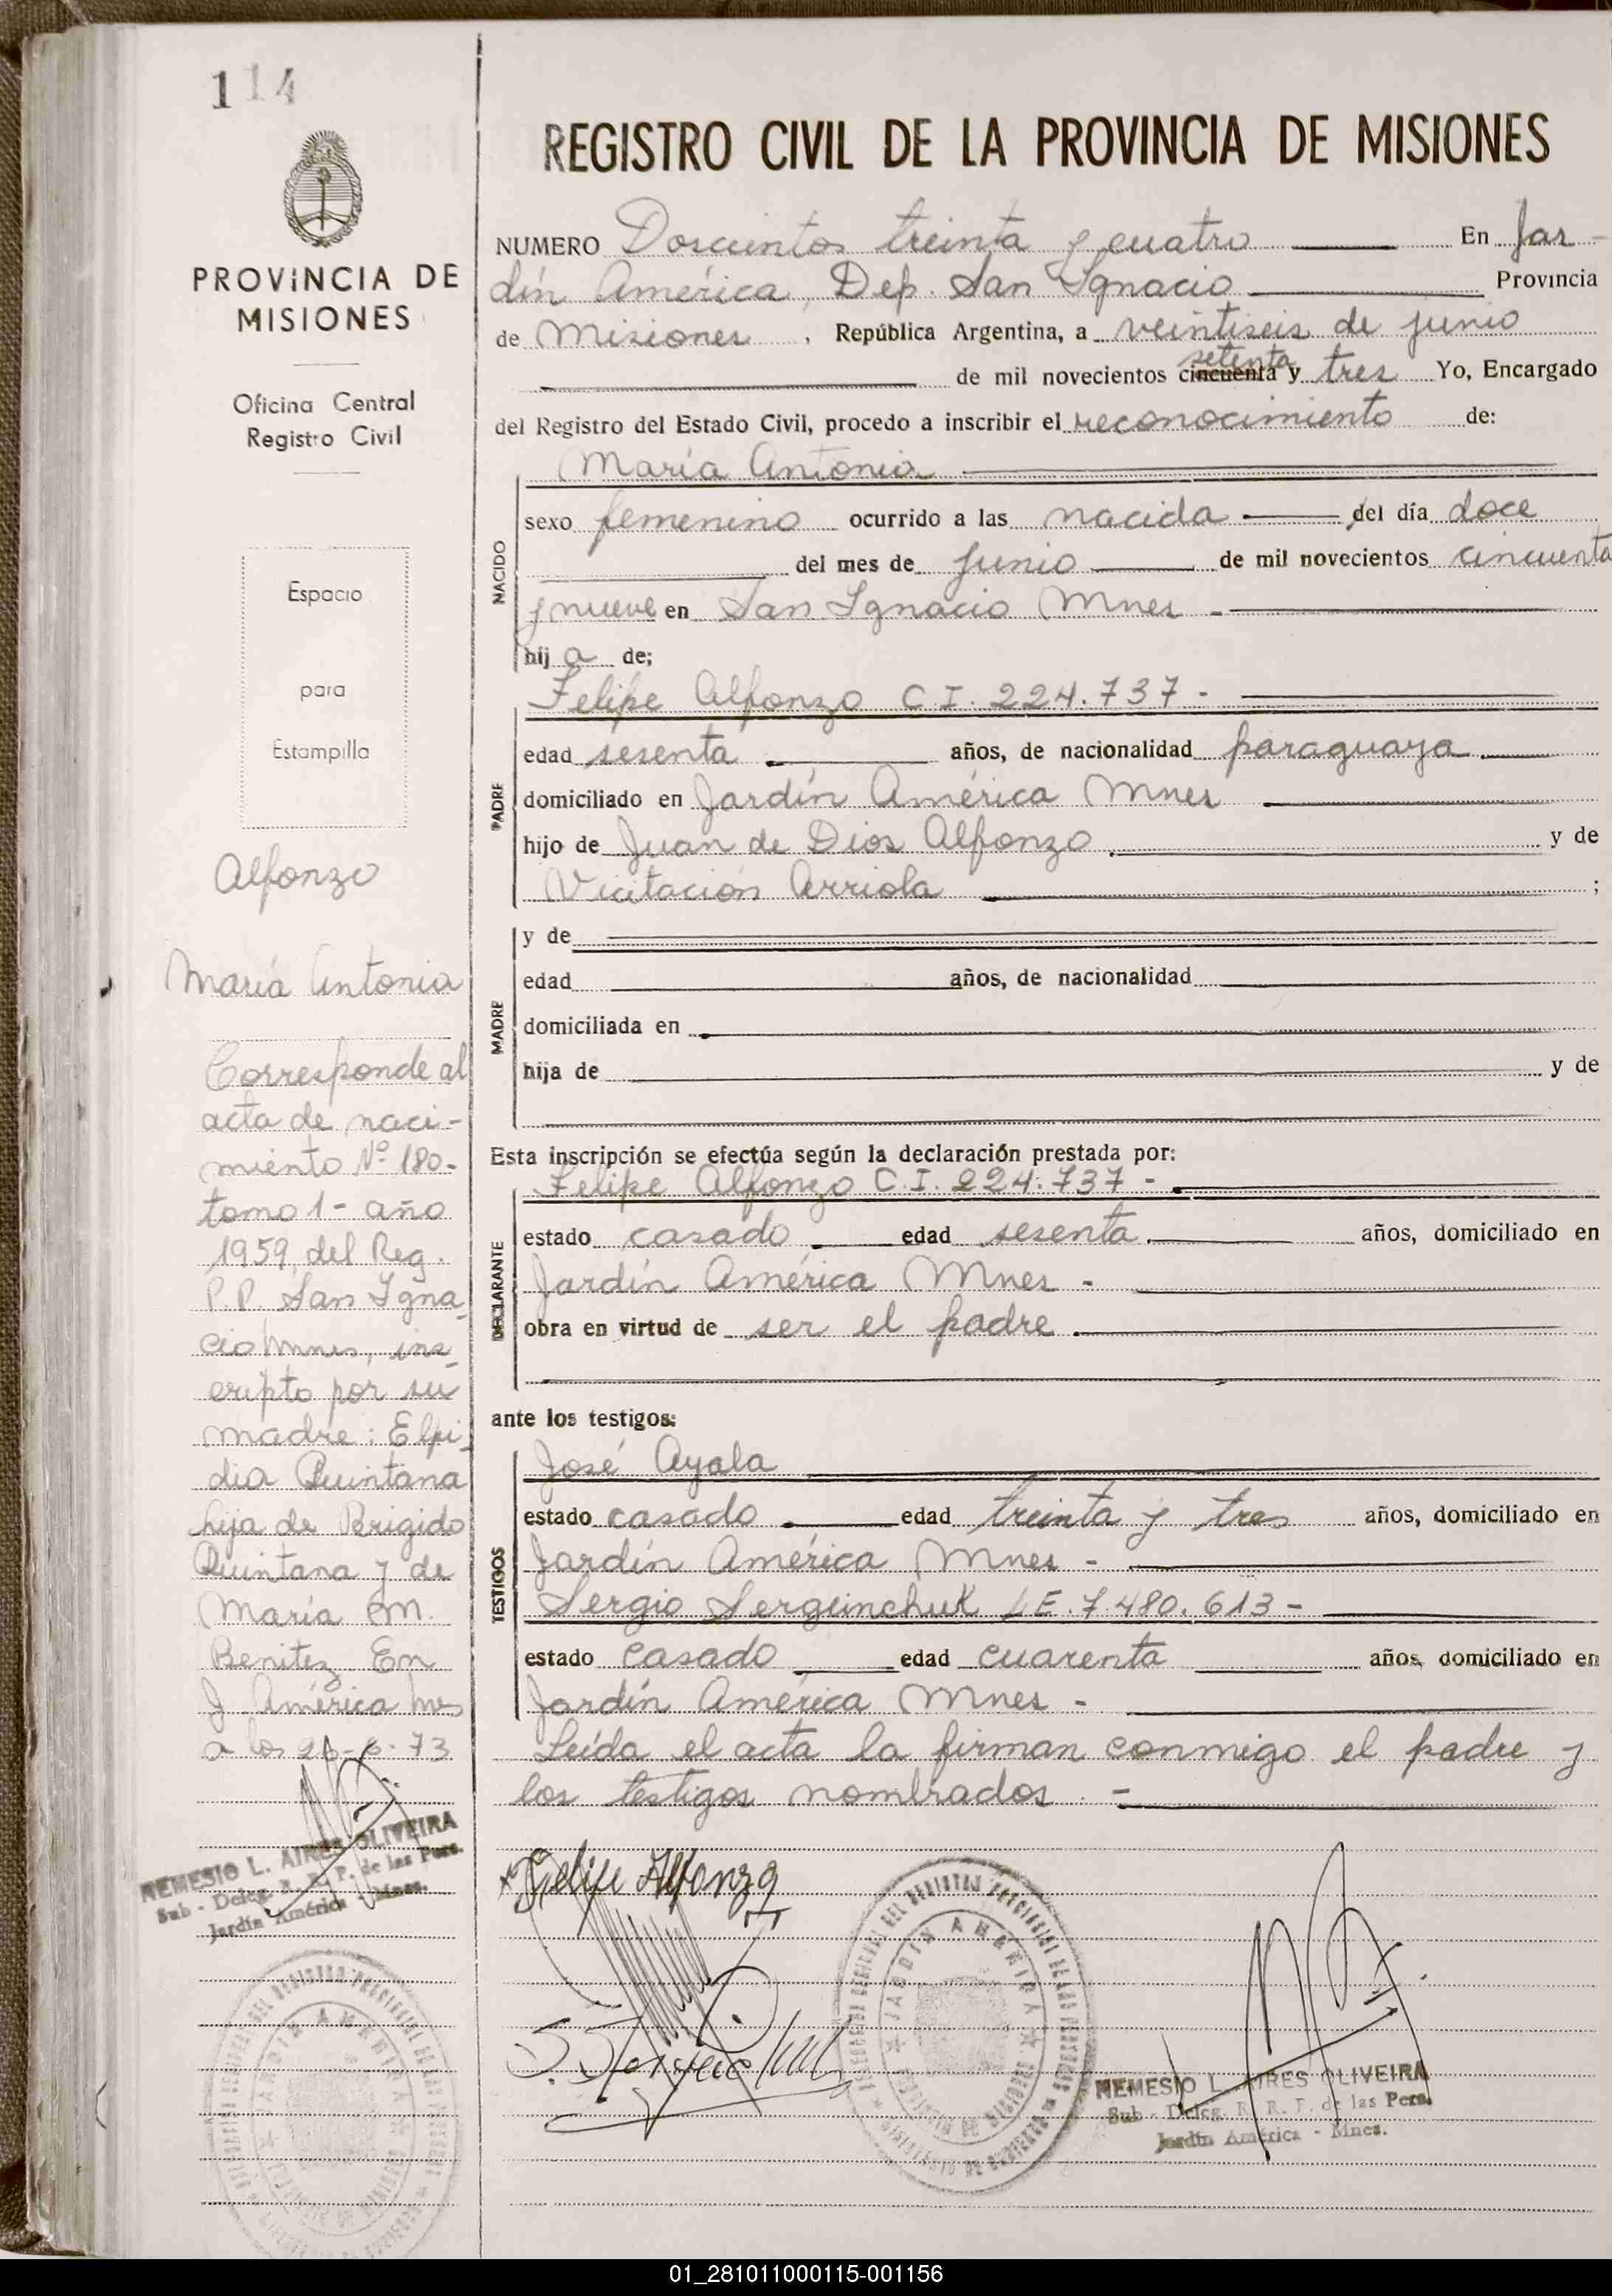 114
PROVINCIA DE
MISIONES
Oficina Central
Registro Civil
Espacio
para
Estampilla
Alfonzo
María Antonia
Corresponde al
acta de naci-
miento Nº 180-
tomo 1- año
1959, del Reg.
P.P. San Igna-
cio Mnes, ins-
cripto por su
madre: Elpi-
dia Quintana
hija de Brigido
Quintana y de
María M.
Benitez En
J. América Mnes
a los 26-6-73
NEMESIO L. AIRES OLIVEIRA
Sub - Deleg. R. R. P. de las Pers.
Jardín América - Mnes.
REGISTRO CIVIL DE LA PROVINCIA DE MISIONES
NUMERO Doscientos treinta y cuatro En Jar-
dín América, Dep. San Ignacio Provincia
de Misiones, República Argentina, a veintiseis de junio
setenta
de mil novecientos cincuenta y tres Yo, Encargado
del Registro del Estado Civil, procedo a inscribir el reconocimiento de:
María Antonia
NACIDO
sexo femenino ocurrido a las nacida del día doce
del mes de junio de mil novecientos cincuenta
y nueve en San Ignacio Mnes -
hij a de;
Felipe Alfonzo C I. 224.737 -
PADRE
edad sesenta años, de nacionalidad paraguaya
domiciliado en Jardín América Mnes
hijo de Juan de Dios Alfonzo y de
Vicitación Arriola ;
MADRE
y de
edad años, de nacionalidad
domiciliada en
hija de y de
Esta inscripción se efectúa según la declaración prestada por:
Felipe Alfonzo C.I. 224.737 -
DECLARANTE
estado casado edad sesenta años, domiciliado en
Jardín América Mnes -
obra en virtud de ser el padre
ante los testigos:
José Ayala
TESTIGOS
estado casado edad treinta y tres años, domiciliado en
Jardín América Mnes -
Sergio Sergeinchuk L E. 7.480.613 -
estado casado edad cuarenta años, domiciliado en
Jardín América Mnes -
Leída el acta la firman conmigo el padre y
los testigos nombrados. -
Felipe Alfonzo
JARDIN AMERICA
NEMESIO L. AIRES OLIVEIRA
Sub - Deleg. R. R. P. de las Pers.
Jardín América - Mnes.
01_281011000115-001156